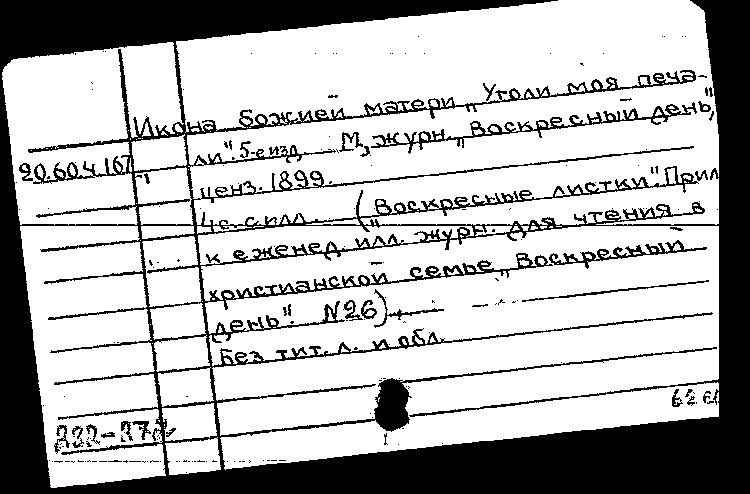 Икона Божией матери „Утоли моя печа-
20.60.4.167 ли". 5-е изд. М, журн. „Воскресный день",
ценз. 1899.
4 с. с илл. („Воскресные листки". Прил
к еженед. илл. журн. для чтения в
христианской семье „Воскресный
день". N26).
Без тит. л. и обл.